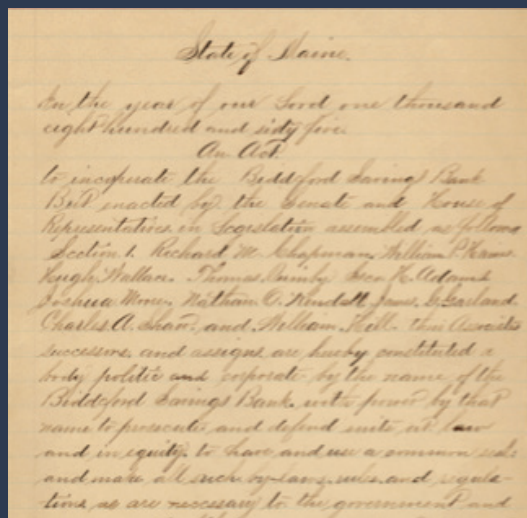 State of Maine.
In the year of our Lord one thousand
eight hundred and sixty five.
An Act
to incoperate the Biddeford Savings Bank
Be it enacted by the Senate and House of
Representatives in Legislature assembled, as follows
Section 1. Richard M. Chapman, William P. Haines
Hugh Wallace. Thomas Quinby H. Adams
Joshua Moore. Nathan O. Kendall James G. Garland
Charles A. Shaw, and, William Hill. their Associates
successors, and assigns, are hereby constituted a
body politic and corporate by the name of the
Biddeford Savings Bank, with power by that
name to prosecute and defend suits at law
and in equity, to have and use a common seal
and make all such by-laws, rules, and regula-
tions, as are necessary to the government and